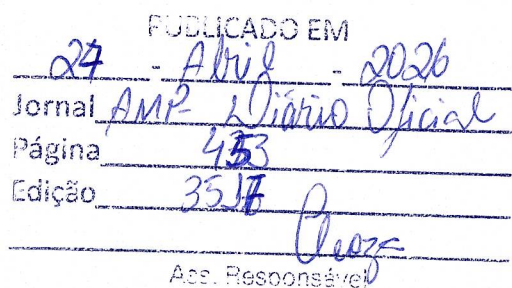 PUBLICADO EM
27 - Abril - 2026
Jornal AMP- Diário Oficial
Página 453
Edição 3517
Ass. Responsável